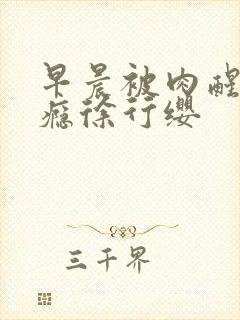 早晨被肉醒
瘾徐行缨
三千界